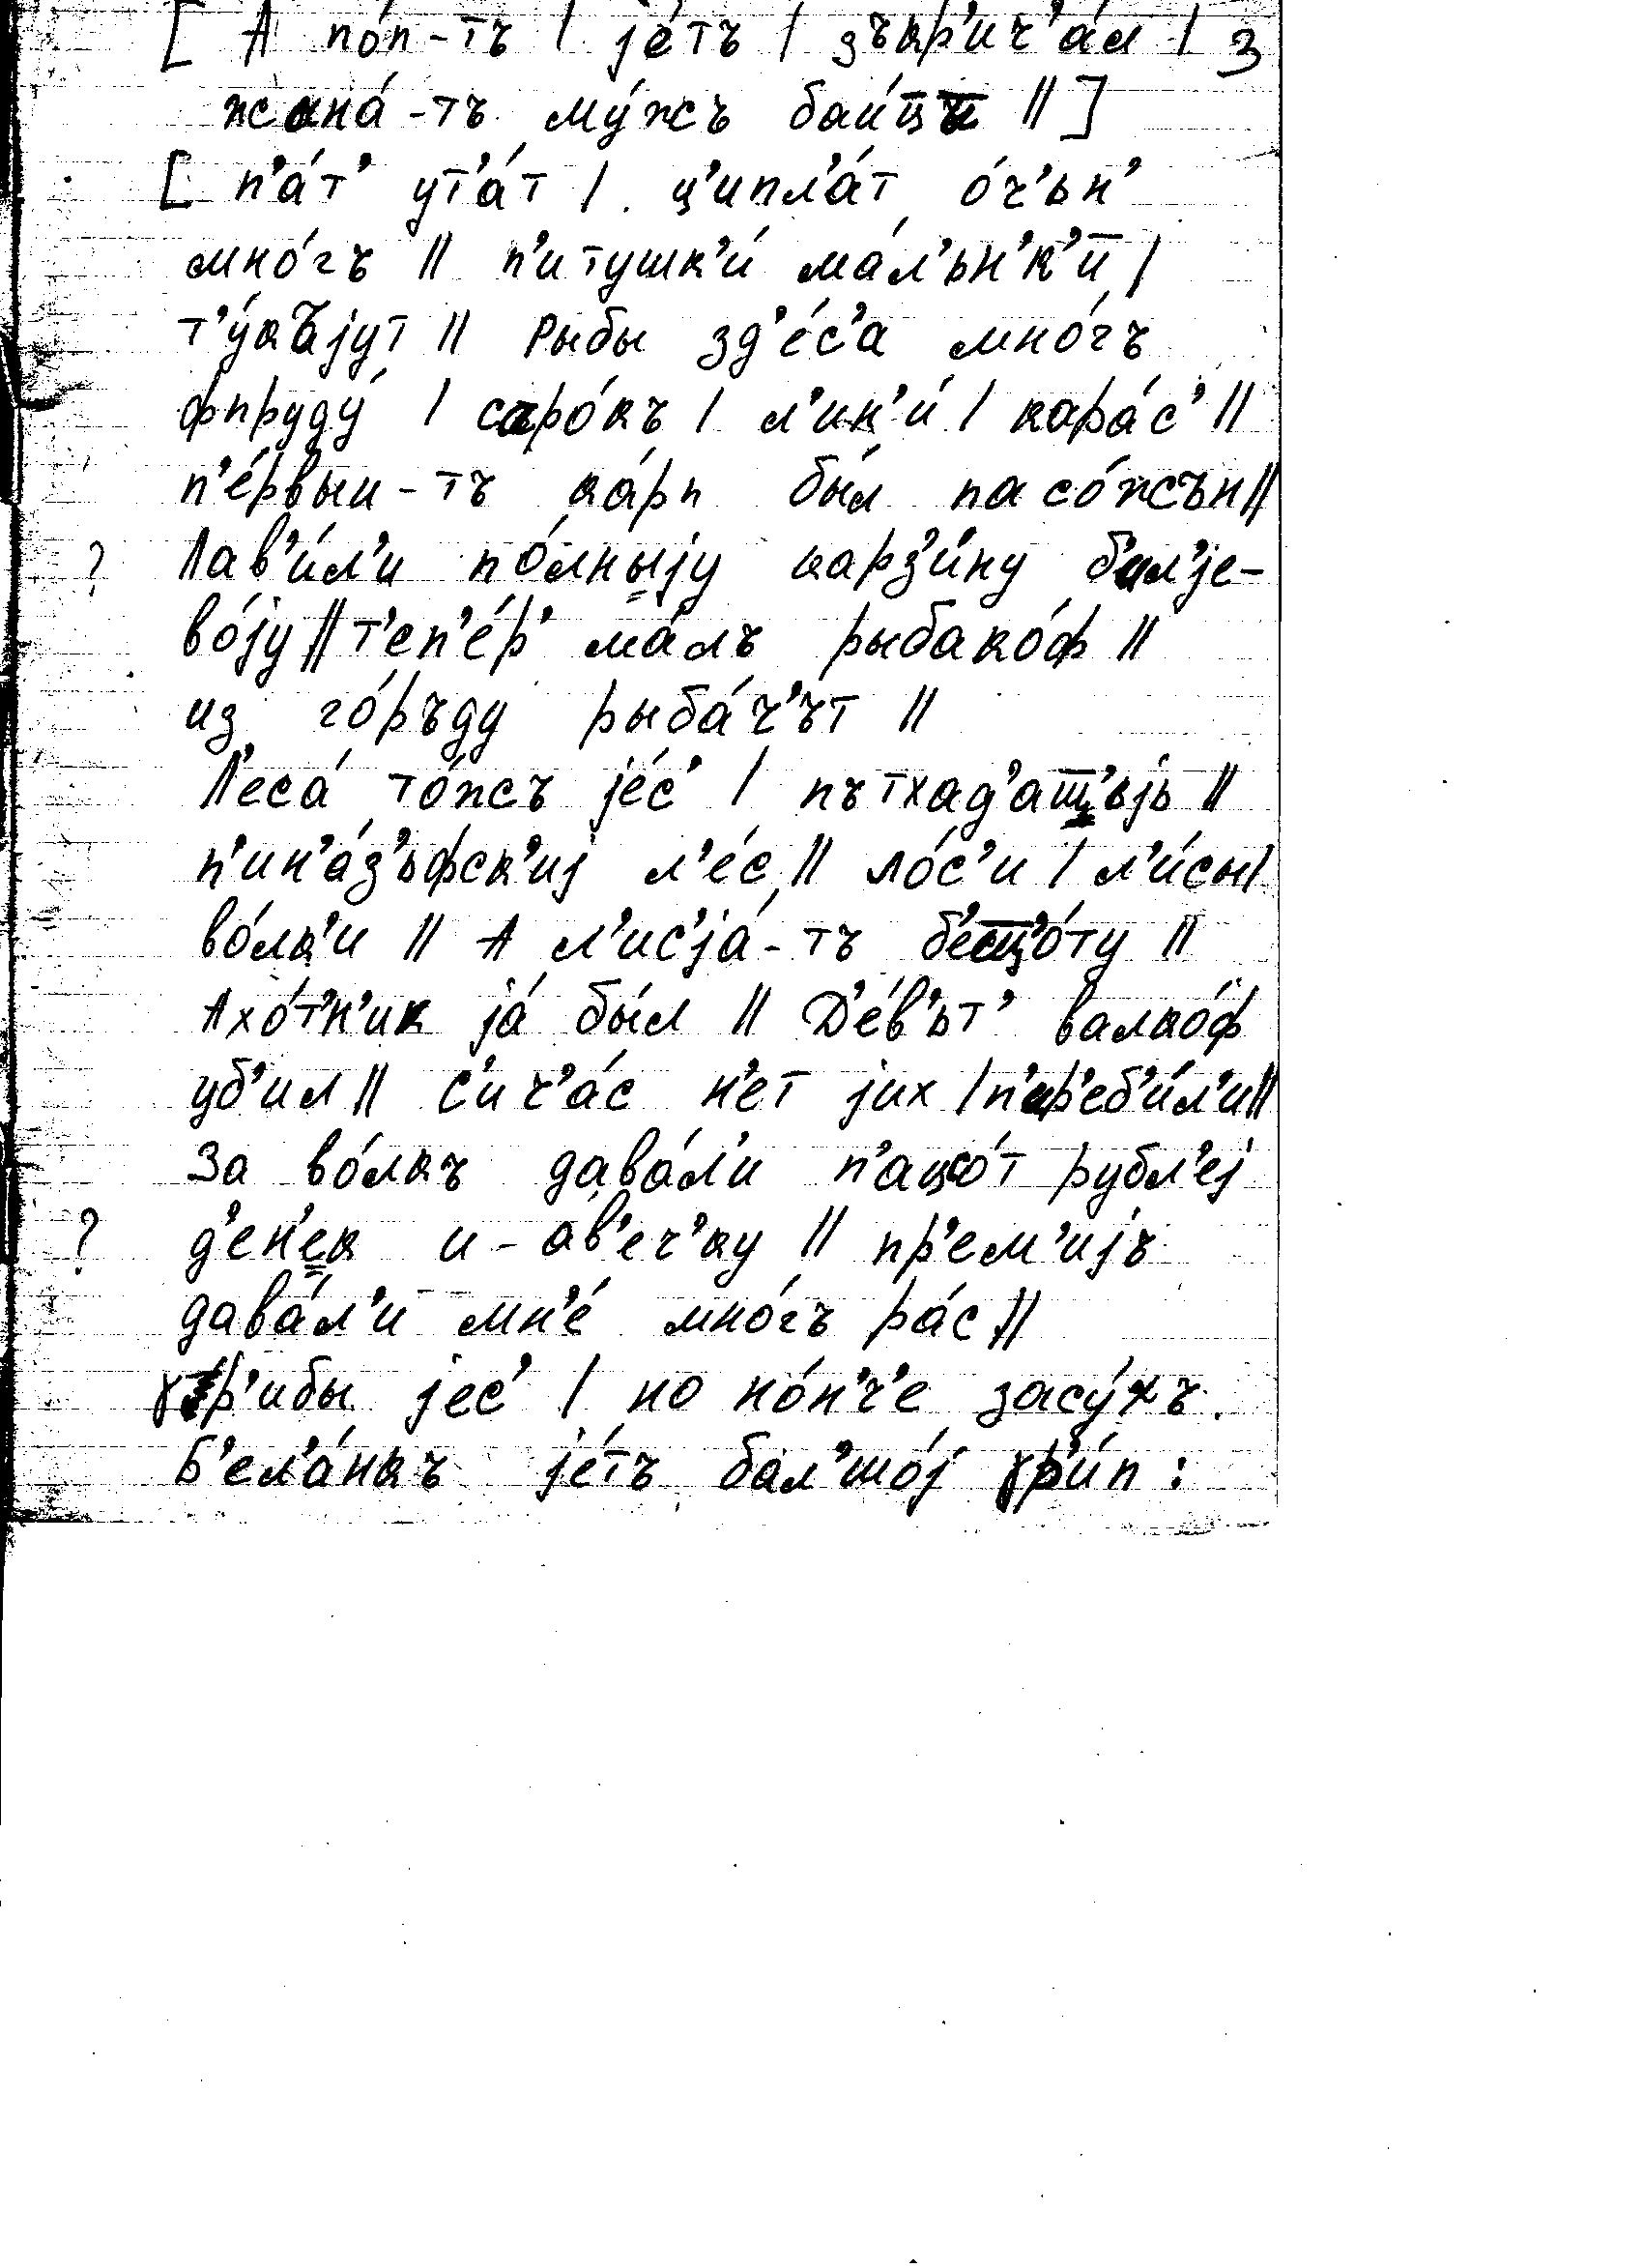 [ А по́п-тъ | је́тъ | зъкр'ич'а́л | 3
жана́-тъ му́жъ баи́цъ || ]
[ п'а́т' ут'а́т | ц'ипл'а́т о́ч'ьн'
мно́гъ || п'итушк'и́ ма́л'ьн'к'и |
т'у́къјут || Рыбы зд'е́с'а мно́гъ
фпруду́ | саро́къ | л'ин'и́ | кара́с' ||
п'е́рвыи-тъ ка́рп бы́л пасо́жън ||
Лав'и́л'и по́лныју карз'и́ну б'ил'је-
? во́ју || т'еп'е́р' ма́лъ рыбако́ф ||
из го́ръду рыба́ч'ът ||
Л'еса́ то́жъ је́с' | пътхад'ащ'ьјь ||
п'ин'а́з'ьфск'иј л'е́с || ло́с'и | л'и́сы |
во́лк'и || А л'ис'ја́-тъ б'ещ'о́ту ||
Ахо́т'н'ик ја́ бы́л || Д'е́в'ьт' валко́ф
уб'ил || с'ич'а́с н'ет јих | п'ир'еб'и́л'и ||
За во́лкъ дава́л'и п'ацо́т рубл'еј
? д'ен'ек и-ав'еч'ку || пр'ем'ијъ
дава́л'и мн'е́ мно́гъ ра́с ||
ɣр'ибы јес' | но но́н'ч'е засу́хъ.
Б'ел'а́нкъ је́тъ бал'шо́ј ɣр'и́п :